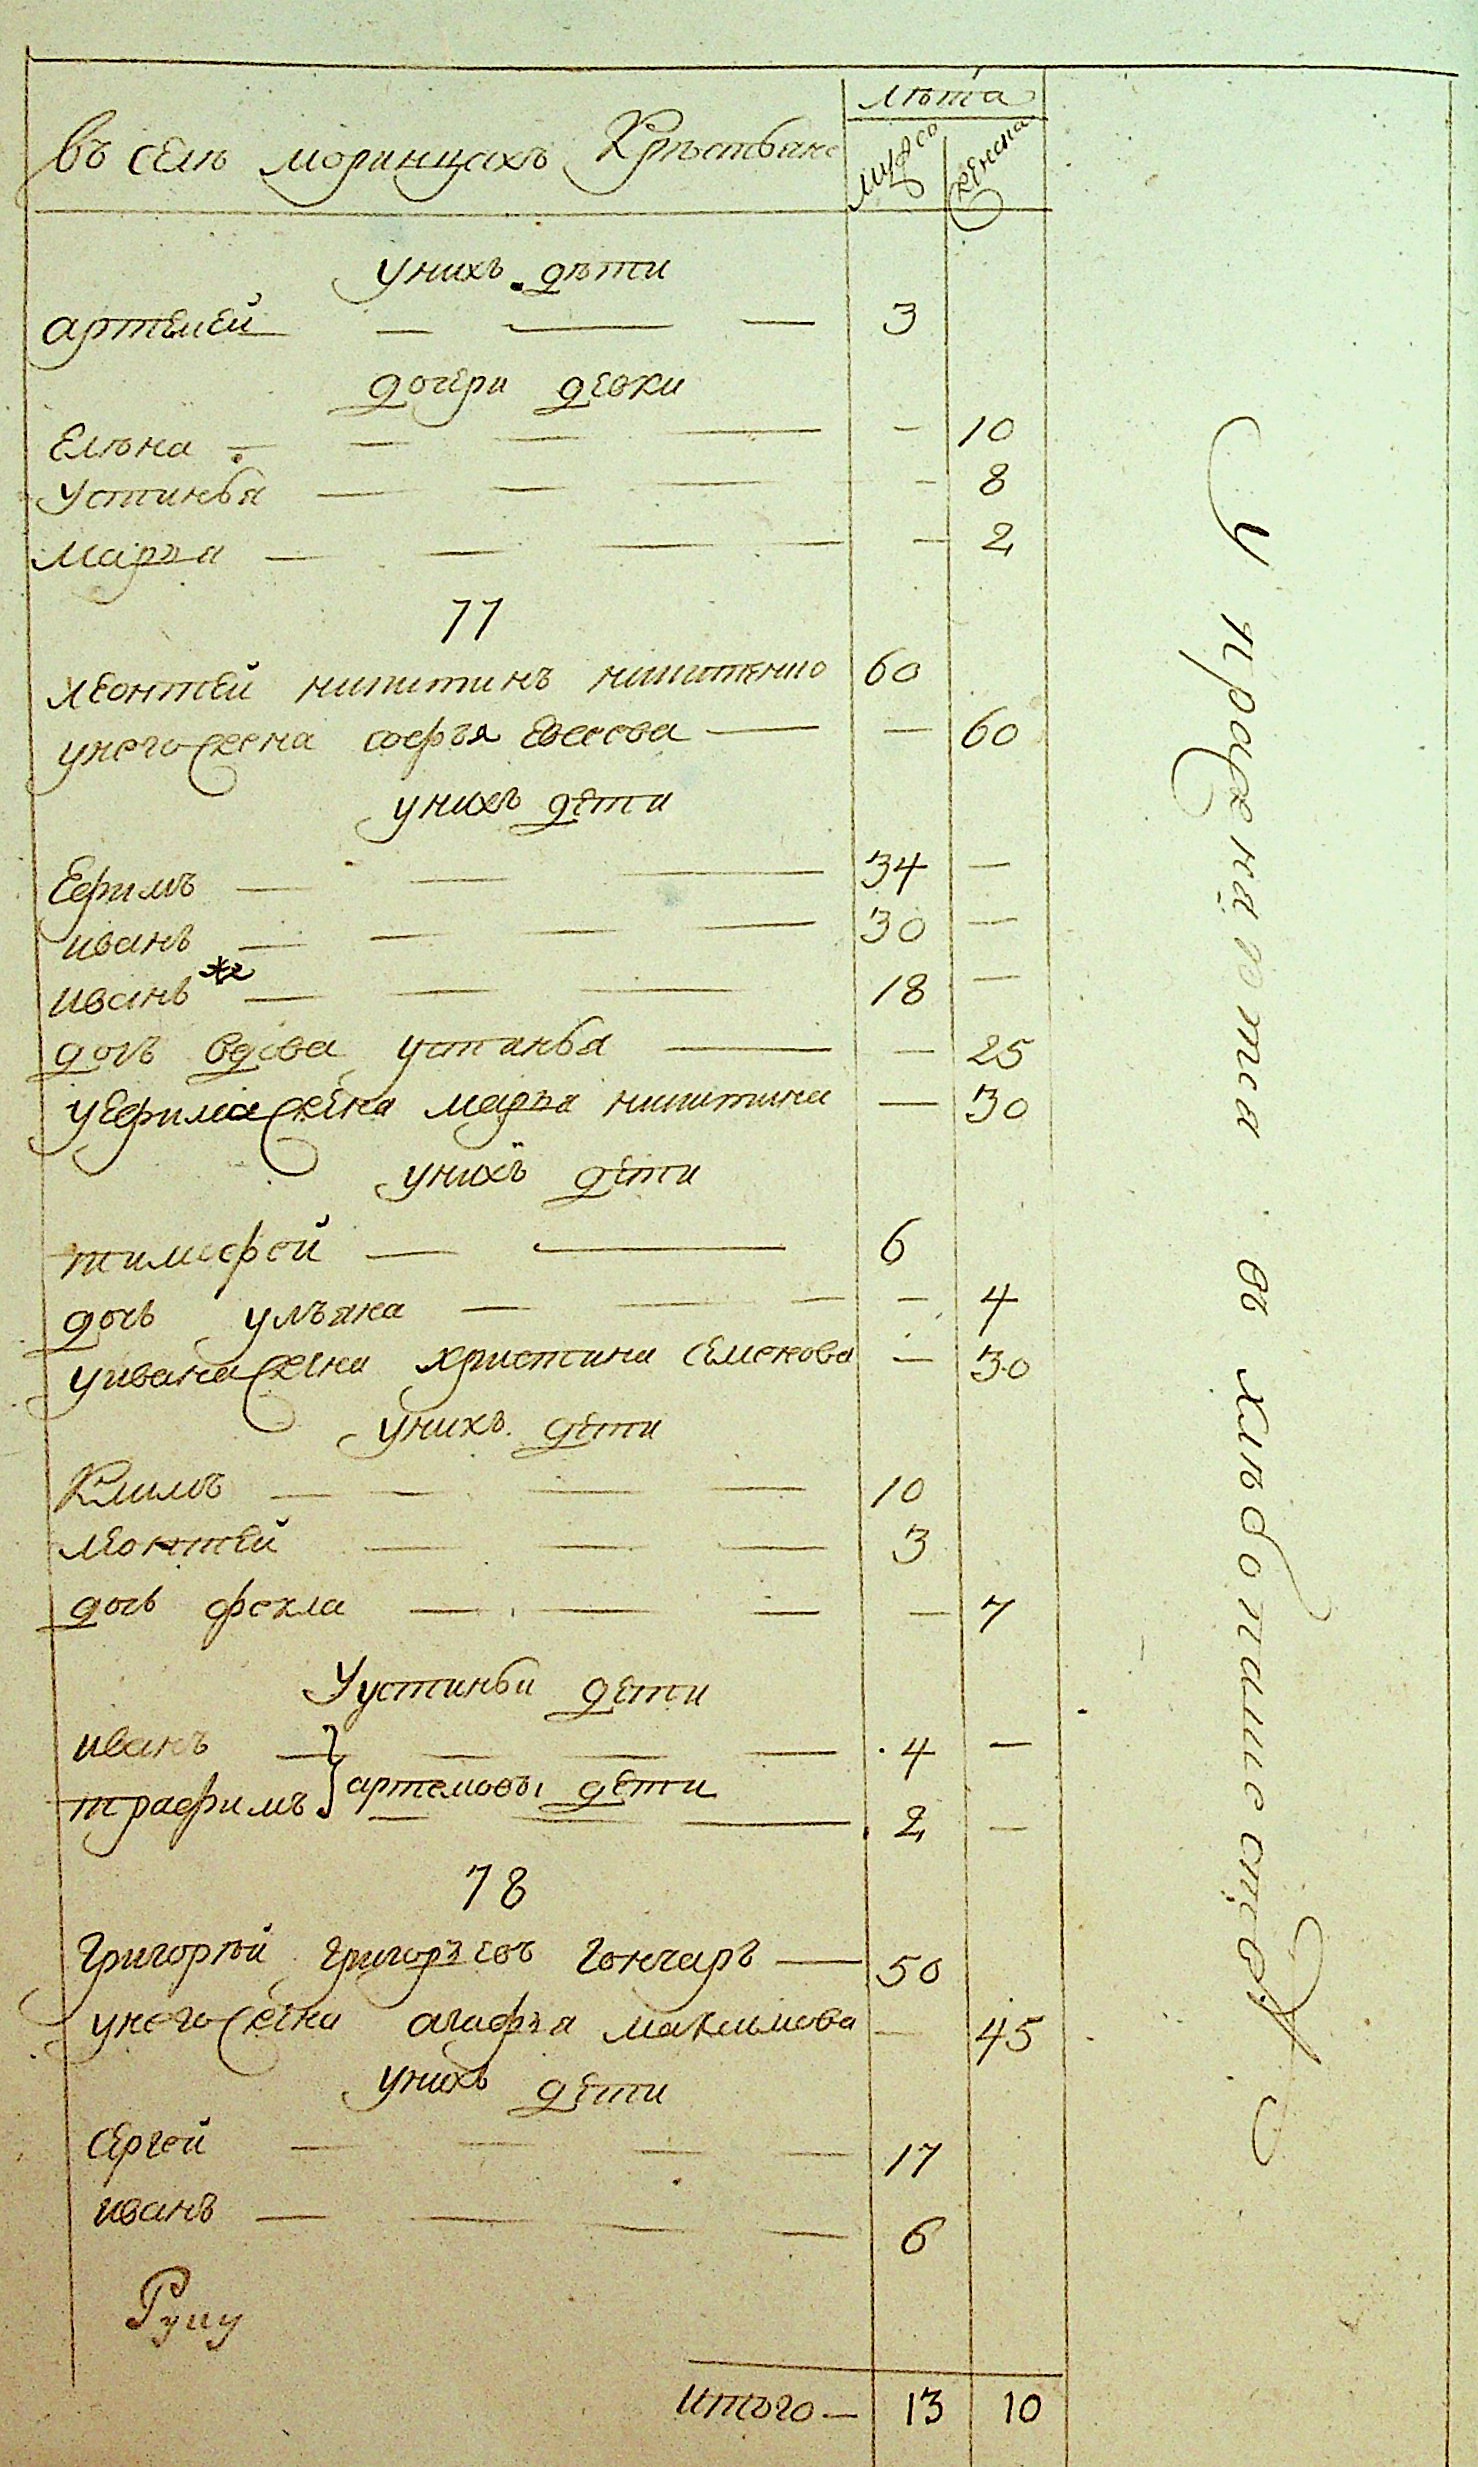 лѣта
въ селѣ моринцахъ Крестьяне
мужес женска
унихъ дѣти
артемей — — — 3
дочери девки
Елѣна — — — — — 10
устинья — — — — 8
марья — — — — — 2
77
леонтей никитинъ никитенко 60
унего жена софъя Евсеева — — 60
унихъ дети
Ефимъ — — — 34 —
иванъ — — — — 30 —
иванъ же — — — 18 —
дочъ вдова устинья — — 25
уефима жена марья никитина — 30
унихъ дети
тимофей — — 6
дочь ульяна — — — — 4
уивана жена христина семенова — 30
унихъ дети
Климъ — — — — 10
леонтей — — — 3
дочь фекла — — — — 7
Уустиньи дети
иванъ — — — — 4 —
артемовы дети
трафимъ — — — 2 —
78
Григорѣй григорьевъ Гончаръ — 50
унего жена агафья максимова — 45
унихъ дети
Сергей — — — — 17
иванъ — — — — 6
Руку
итого — 13 10
в хлѣбопашествѣ